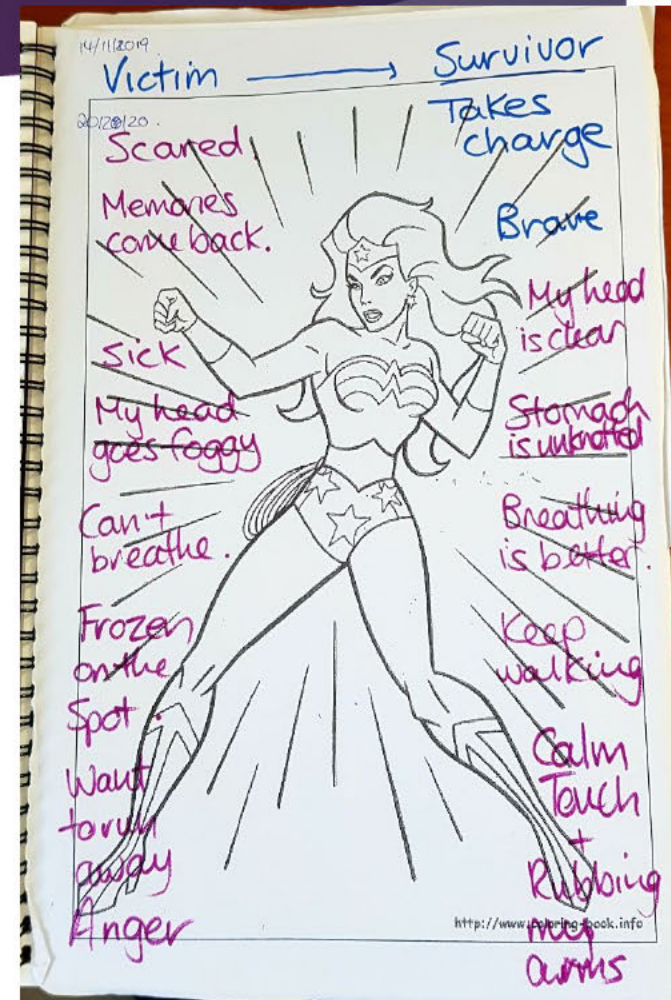 14/11/2019
Victim → Survivor
Scared
Memories
come back.
Sick
My head
goes foggy
Can't
breathe.
Frozen
on the
Spot.
Want
to run
away
Anger
Takes
charge
Brave
My head
is clear
Stomach
is unknotted
Breathing
is better.
Keep
walking
Calm
Touch
+
Rubbing
my
arms
http://www.coloring-book.info